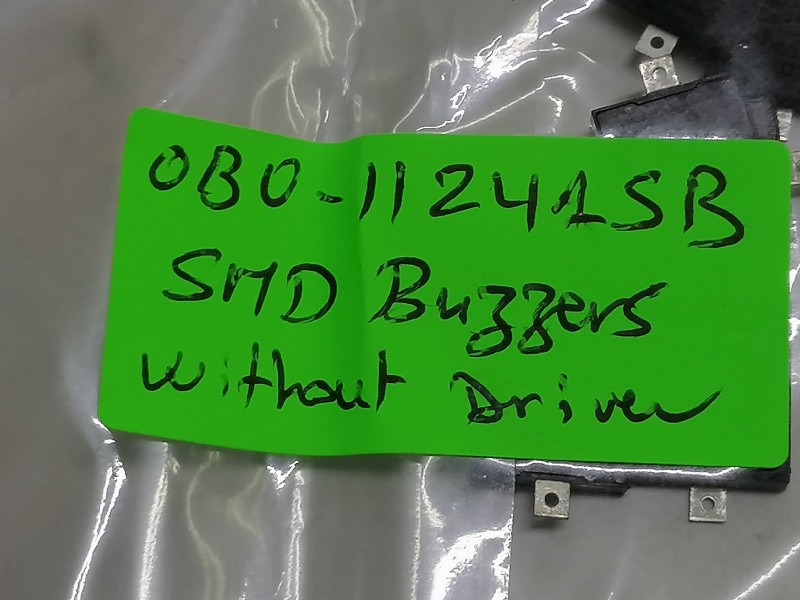 OBO-11241SB
SMD Buzzers
Without Driver